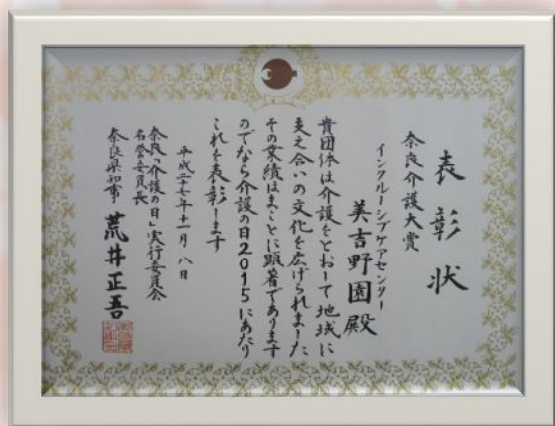 表彰状
奈良介護大賞
インクルーシブケアセンター
美吉野園殿
貴団体は介護をとおして地域に
支え合いの文化を広げられました
その業績はまことに顕著であります
のでなら介護の日2015にあたり
これを表彰します
平成二十七年十一月八日
奈良「介護の日」実行委員会
名誉委員長
奈良県知事 荒井正吾